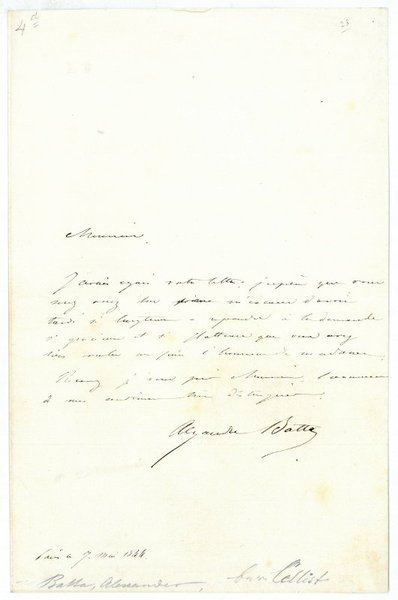 4d
23
Monsieur
J'avais égaré votre lettre; j'espère que vous
serez assez bon m'excuser d'avoir
tardé si longtems à répondre à la demande
si gracieuse et si flatteuse que vous avez
bien voulu me faire l'honneur de m'adresser.
Recevez je vous prie Monsieur l'assurance
de mes sentimens très distingués.
Alexandre Batta
Paris ce 7 Mai 1844
Batta, Alexander, Cellist